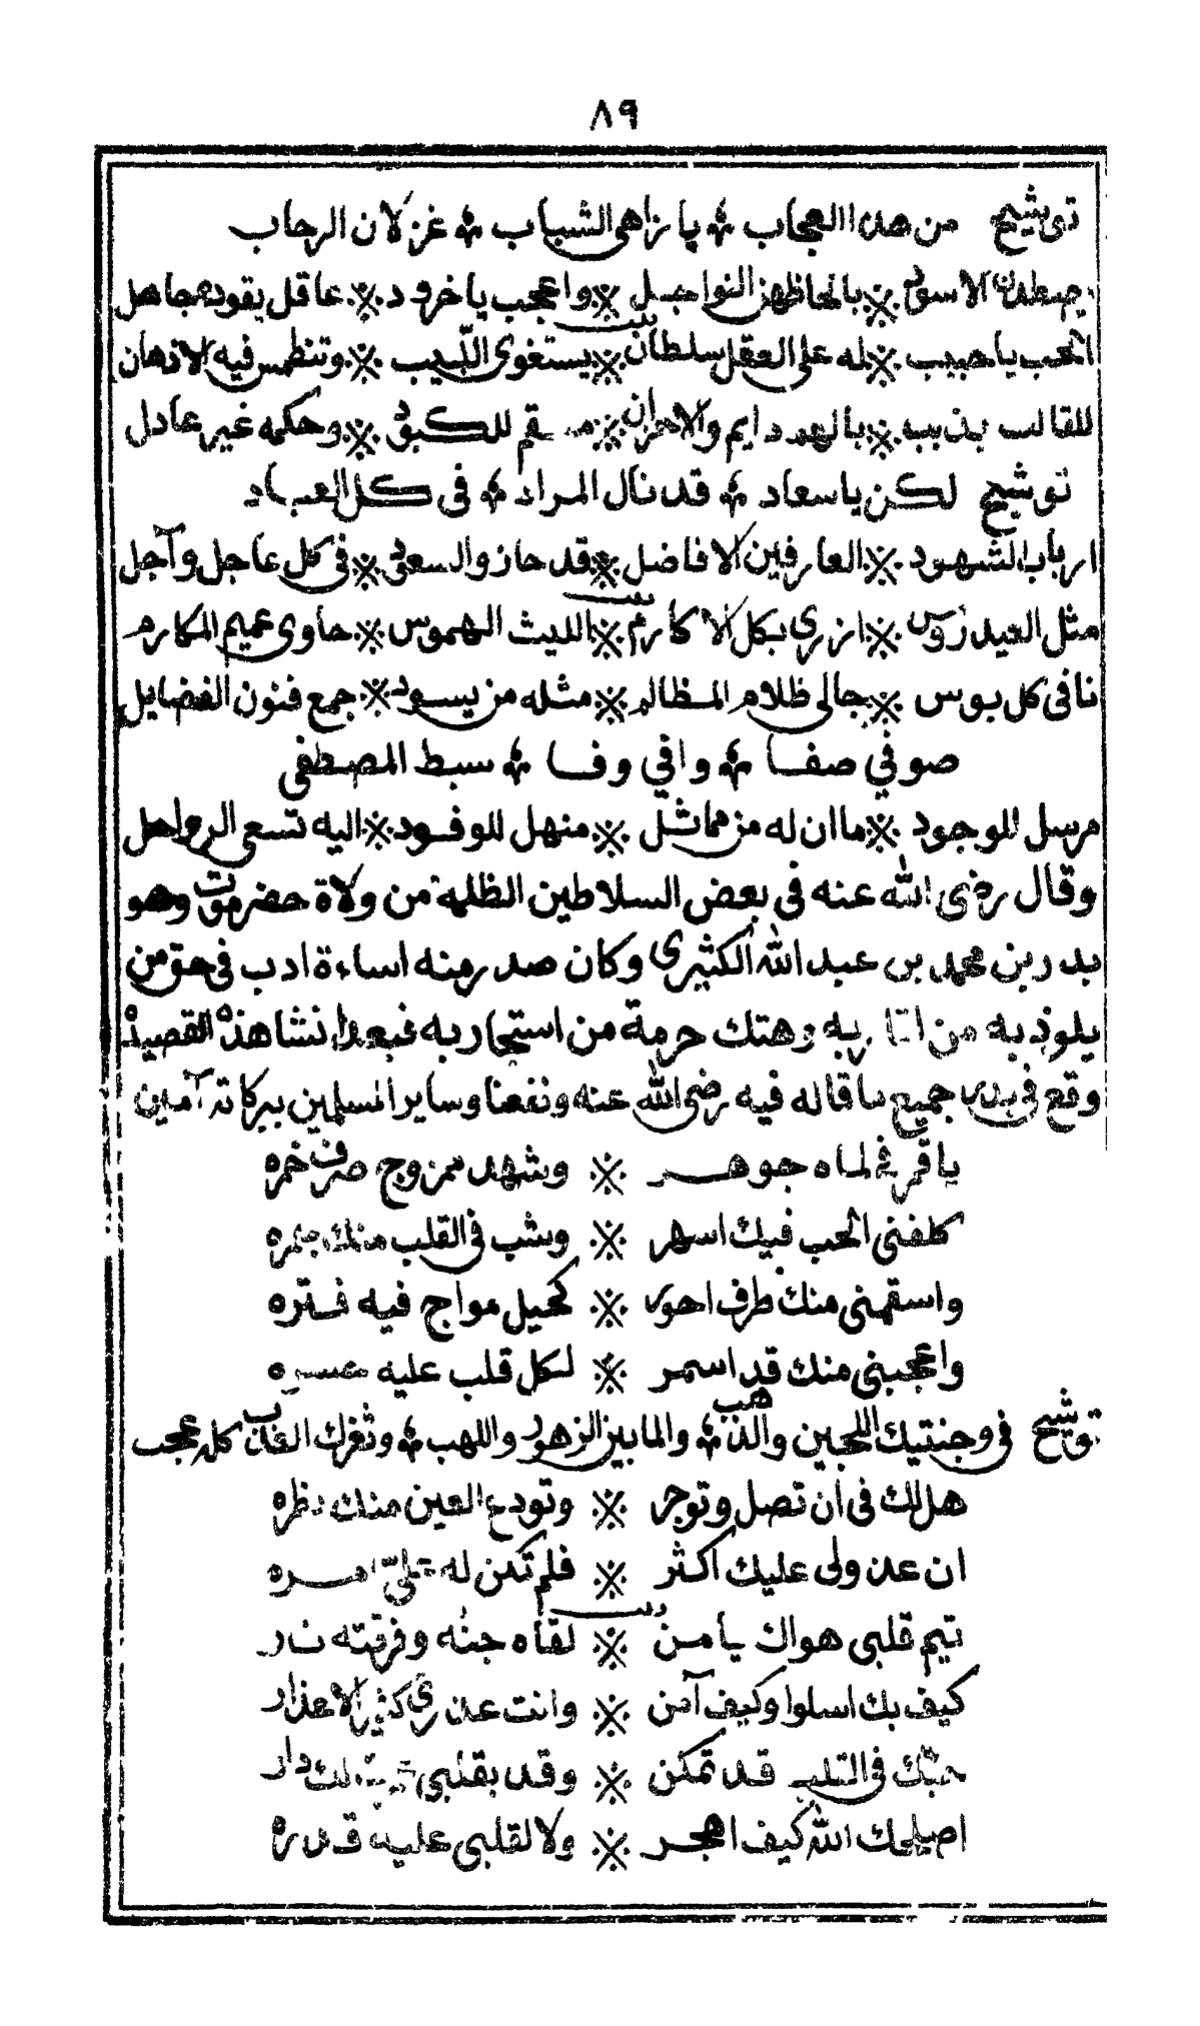 ٨٩
توشيح من هذا العجاب ❋ يا زاهى الشباب ❋ غزلان الرحاب
يصطفان الاسود ※ بالحاظهن النواجل ※ واعجب ياخرود ※ عاقل يقوده جاهل
الحب ياحبيب ※ له على العقل سلطان ※ يستغوى اللبيب ※ وتنطمس فيه الاذهان
للقالب يذيب ※ بالهم دايم والاحزان ※ قم للكبود ※ وحكمه غير عادل
توشيح لكن ياسعاد ❋ قد نال المراد ❋ فى كل العباد
ارباب الشهود ※ العارفين الافاضل ※ قد حازوا السعود ※ فى كل عاجل وآجل
مثل العيدروس ※ ازرى بكل الاكارم ※ الليث الهموس ※ حاوى عميم المكارم
نافى كل بوس ※ جالى ظلام المظالم ※ مثله من يسود ※ جمع فنون الفضايل
صوفي صفا ❋ وافي وفا ❋ سبط المصطفى
مرسل للوجود ※ ما ان له من مماثل ※ منهل للوفود ※ اليه تسعى الرواحل
وقال رضى الله عنه فى بعض السلاطين الظلمة من ولاة حضرموت وهو
بدر بن محمد بن عبد الله الكثيرى وكان صدر منه اساءة ادب فى حق من
يلوذ به من اقاربه وهتك حرمة من استجار به فبعد انشا هذه القصيدة
وقع فى بدر جميع ما قاله فيه رضى الله عنه ونفعنا وساير المسلمين ببركاته آمين
ياقمر فى لماه جوهر ※ وشهد ممزوج صرف خمره
كلفنى الحب فيك اسهر ※ وشب فى القلب منك جمره
واسقمنى منك طرف احور ※ كحيل مواج فيه فتره
واعجبنى منك قد اسمر ※ لكل قلب عليه حسره
توشيح فى وجنتيك اللجين والذهب ❋ والما بين الزهور واللهب ❋ وثغرك العذب كله عجب
هل لك فى ان تصل وتوجر ※ وتودع العين منك نظره
ان عذولى عليك اكثر ※ فلم تكن له على امره
تيم قلبى هواك يا من ※ لقاه جنه وفرقته نار
كيف بك اسلوا وكيف آمن ※ وانت عذرى كثير الاعذار
حبك فى القلب قد تمكن ※ وقد بقلبى لك دار
اصلحك الله كيف اهجر ※ ولا لقلبى عليه قدره